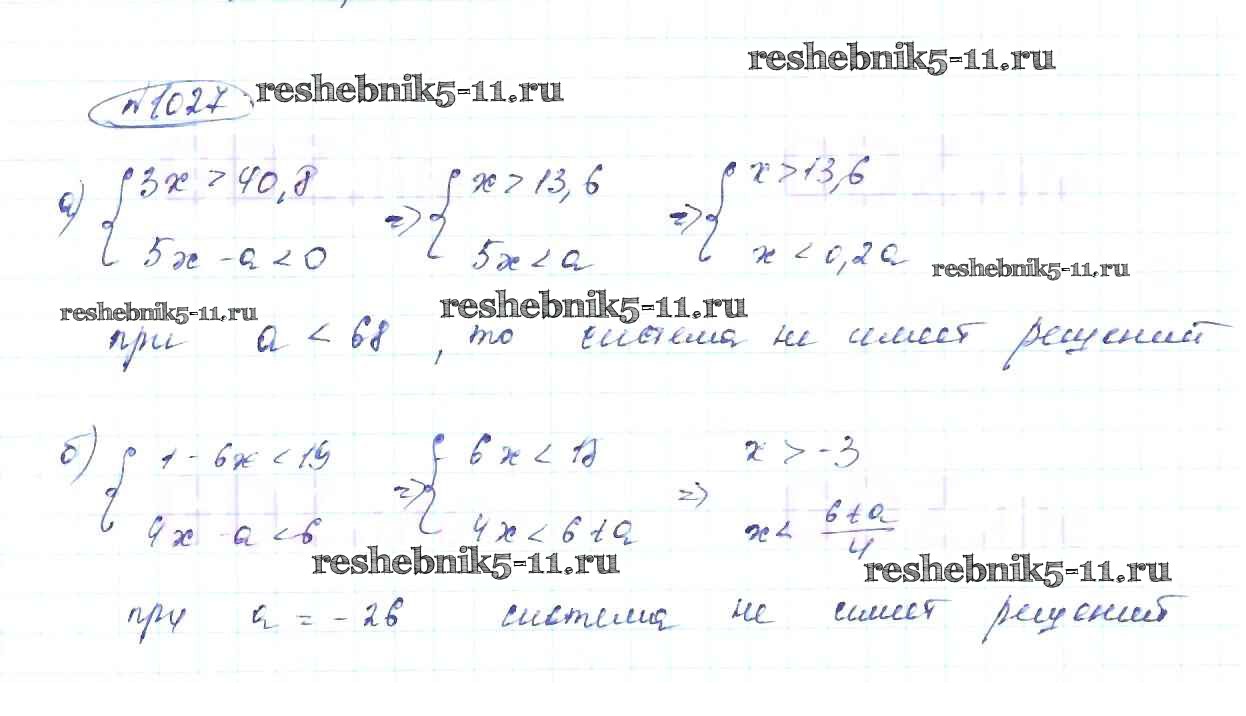 reshebnik5-11.ru
№1027 reshebnik5-11.ru
а) { 3x > 40,8 => { x > 13,6 => { x > 13,6
5x - a < 0 5x < a x < 0,2a
reshebnik5-11.ru
reshebnik5-11.ru reshebnik5-11.ru
при a < 68, то система не имеет решений
б) { 1 - 6x < 19 => { 6x < 18 => x > -3
4x - a < 6 4x < 6 + a x < (6+a)/4
reshebnik5-11.ru reshebnik5-11.ru
при a = -26 система не имеет решений